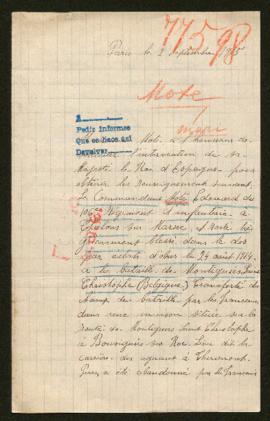 77598
Paris le 2 Septembre 1915
Mote
1
Pedir informes
Que se hace aqui
Devolver
Mote a l'honneur de
l'intervention de sa
Majesté le Roi d'Espagne pour
obtenir les renseignements suivants
Le Commandant Mote Edouard du
106e Régiment d'infanterie à
Chalons sur Marne
blessé dans le dos
par éclats d'obus le 24 août 1914
à la bataille de Montignies Saint
Christophe (Belgique) Transporté du
champ de bataille par les français
dans une maison située sur la
route de Montignies Saint Christophe
à Bousignies sur Roc Lieu dit la
carrière des
Puis a été abandonné par les français